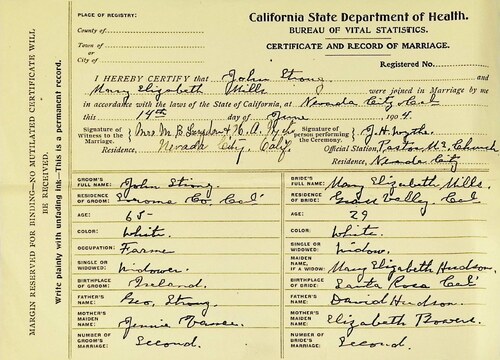 PLACE OF REGISTRY:
County of
Town of
or
City of
California State Department of Health.
BUREAU OF VITAL STATISTICS.
CERTIFICATE AND RECORD OF MARRIAGE.
Registered No.
I HEREBY CERTIFY that John Strong and
Mary Elizabeth Mills were joined in Marriage by me
in accordance with the laws of the State of California, at Nevada City Cal
this 14th day of June 1904
Signature of Witness to the Marriage Mrs M. B. & H. A.
Residence, Nevada City, Calif.
Signature of person performing the Ceremony, J. H. Wythe
Official Station, Pastor M.E. Church
Residence, Nevada City
MARGIN RESERVED FOR BINDING—NO MUTILATED CERTIFICATE WILL BE RECEIVED.
Write plainly with unfading ink—This is a permanent record.
GROOM'S FULL NAME: John Strong
RESIDENCE OF GROOM: Sonoma Co. Cal
AGE: 65
COLOR: White.
OCCUPATION: Farmer
SINGLE OR WIDOWED: Widower
BIRTHPLACE OF GROOM: Ireland.
FATHER'S NAME: Geo, Strong.
MOTHER'S MAIDEN NAME: Jennie
NUMBER OF GROOM'S MARRIAGE: Second.
BRIDE'S FULL NAME: Mary Elizabeth Mills.
RESIDENCE OF BRIDE: Grass Valley, Cal
AGE: 29
COLOR: White.
SINGLE OR WIDOWED: Widow.
MAIDEN NAME, IF A WIDOW: Mary Elizabeth Hudson.
BIRTHPLACE OF BRIDE: Santa Rosa Cal
FATHER'S NAME: David Hudson.
MOTHER'S MAIDEN NAME: Elizabeth Bowers.
NUMBER OF BRIDE'S MARRIAGE: Second.